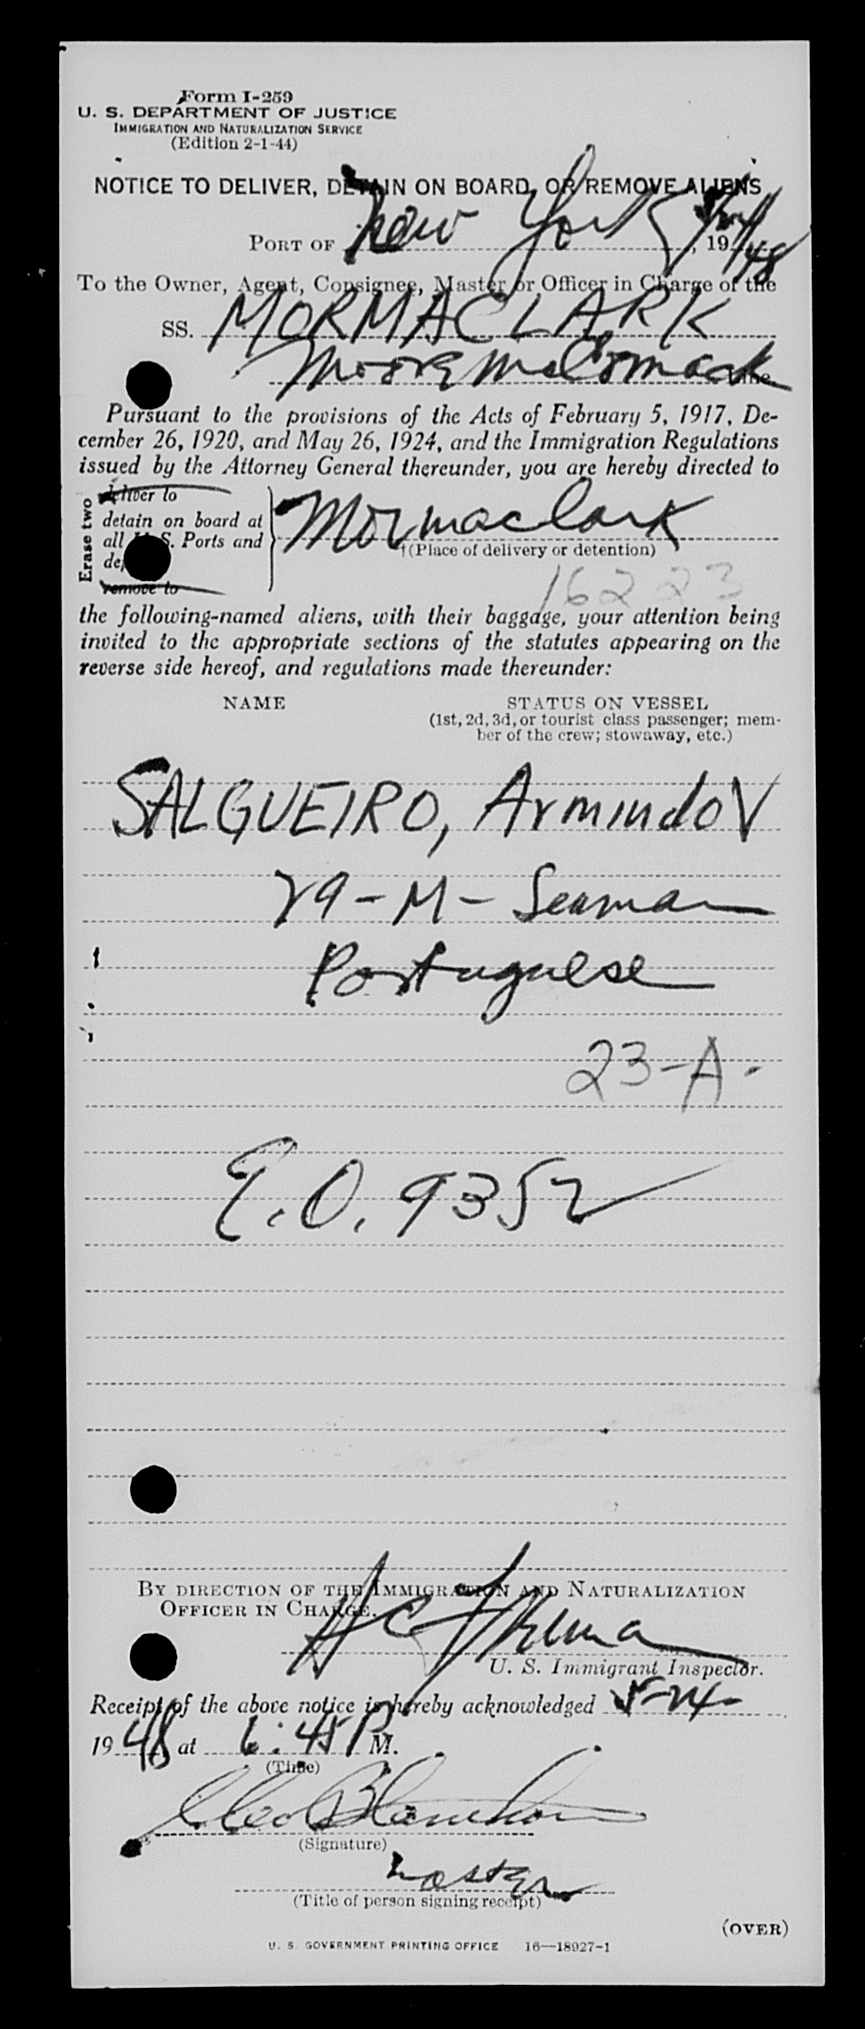 Form I-259
U. S. DEPARTMENT OF JUSTICE
IMMIGRATION AND NATURALIZATION SERVICE
(Edition 2-1-44)
NOTICE TO DELIVER, DETAIN ON BOARD, OR REMOVE ALIENS
PORT OF New York, 5/24/1948
To the Owner, Agent, Consignee, Master or Officer in Charge of the
SS. MORMACLARK
Moore McCormack Line
Pursuant to the provisions of the Acts of February 5, 1917, De-
cember 26, 1920, and May 26, 1924, and the Immigration Regulations
issued by the Attorney General thereunder, you are hereby directed to
Erase two
deliver to
detain on board at
all U. S. Ports and
remove to
Mormaclark
†(Place of delivery or detention)
16223
the following-named aliens, with their baggage, your attention being
invited to the appropriate sections of the statutes appearing on the
reverse side hereof, and regulations made thereunder:
NAME
STATUS ON VESSEL
(1st, 2d, 3d, or tourist class passenger; mem-
ber of the crew; stowaway, etc.)
SALGUEIRO, Armindo V
29-M- Seaman
Portuguese
23-A-
E.O. 9352
BY DIRECTION OF THE IMMIGRATION AND NATURALIZATION
OFFICER IN CHARGE.
U. S. Immigrant Inspector.
Receipt of the above notice is hereby acknowledged 5-24-
1948 at 6:45 P M.
(Time)
(Signature)
Master
(Title of person signing receipt)
(OVER)
U. S. GOVERNMENT PRINTING OFFICE 16—18927-1